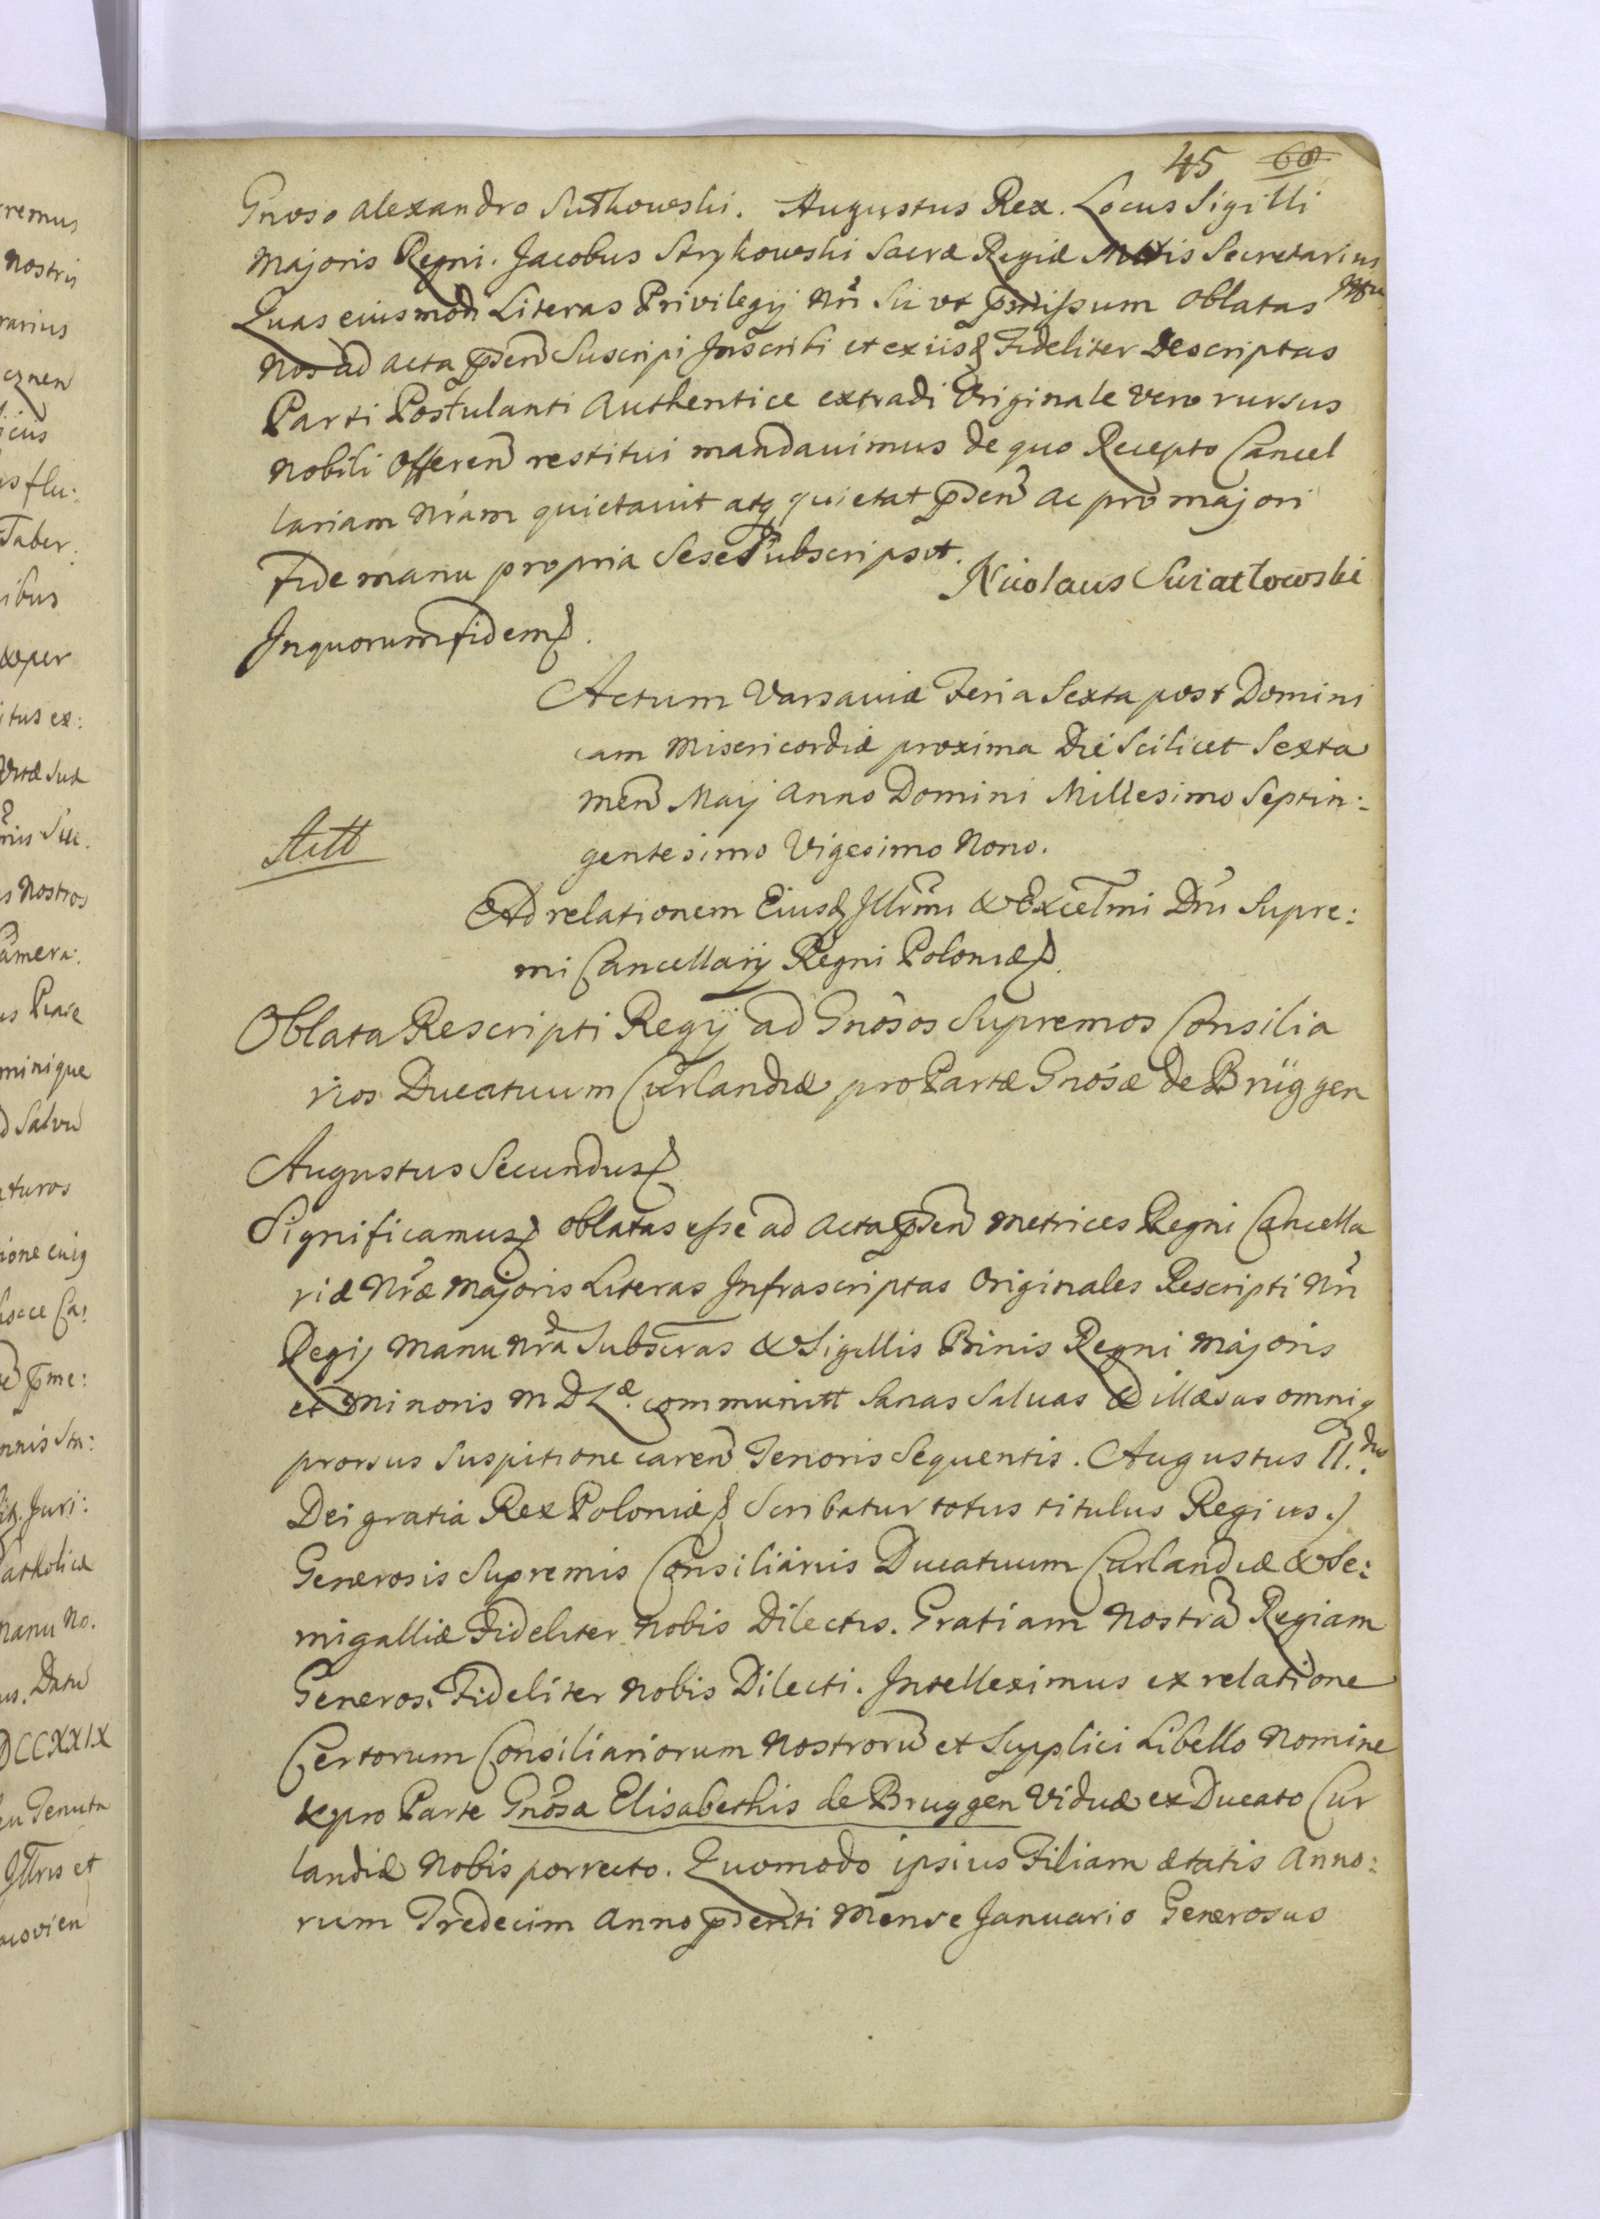 45 60
Gnoso Alexandro Sułkowski. Augustus Rex. Locus Sigilli
Majoris Regni. Jacobus Strykowski Sacræ Regiæ Mttis Secretarius
Quas eiusmodi Literas Privilegij Nri Sic ut pmissum oblatas
Nos ad acta psen Suscipi Inscribi et ex iis Fideliter Descriptas
Parti Postulanti Authentice extradi Originale vero rursus
Nobili Offeren restitui mandavimus de quo Recepto Cancel
lariam Nram quietavit atq quietat psen ac pro majori
fide manu propria Sese Subscripsit. Nicolaus Swiatłowski
In quorum fidem
Actum Varsaviæ Feria Sexta post Domini
cam Misericordiæ proxima Die Scilicet Sexta
Men May Anno Domini Millesimo Septin:
gentesimo Vigesimo Nono.
Ad relationem Eiusd Illrmi & Excellmi Dni Supre:
mi Cancellarij Regni Poloniæ
Oblata Rescripti Regij ad Gnosos Supremos Consilia
rios Ducatuum Curlandiæ pro Parte Gnosæ De Brüggen
Augustus Secundus
Significamus oblatas esse ad Acta psen Metrices Regni Cancella
riæ Nræ Majoris Literas Infrascriptas Originales Rescripti Nri
Regij Manu Nra Subscras & Sigillis Binis Regni Majoris
et Minoris M D L æ communitt Sanas Salvas & illæsas omniq
prorsus Suspitione caren Tenoris Sequentis. Augustus II.dus
Dei gratia Rex Poloniæ Scribatur totus titulus Regius./
Generosis Supremis Consiliariis Ducatuum Curlandiæ & Se:
migalliæ Fideliter Nobis Dilectis. Gratiam Nostra Regiam
Generosi Fideliter Nobis Dilecti. Intelleximus ex relatione
Certorum Consiliariorum Nostroru et Supplici Libello Nomine
& pro Parte Gnosa Elisabethis de Bruggen Viduæ ex Ducato Cur
landiæ Nobis porrecto. Quomodo ipsius Filiam ætatis Anno:
rum Tredecim Anno psenti Mense Januario Generosus